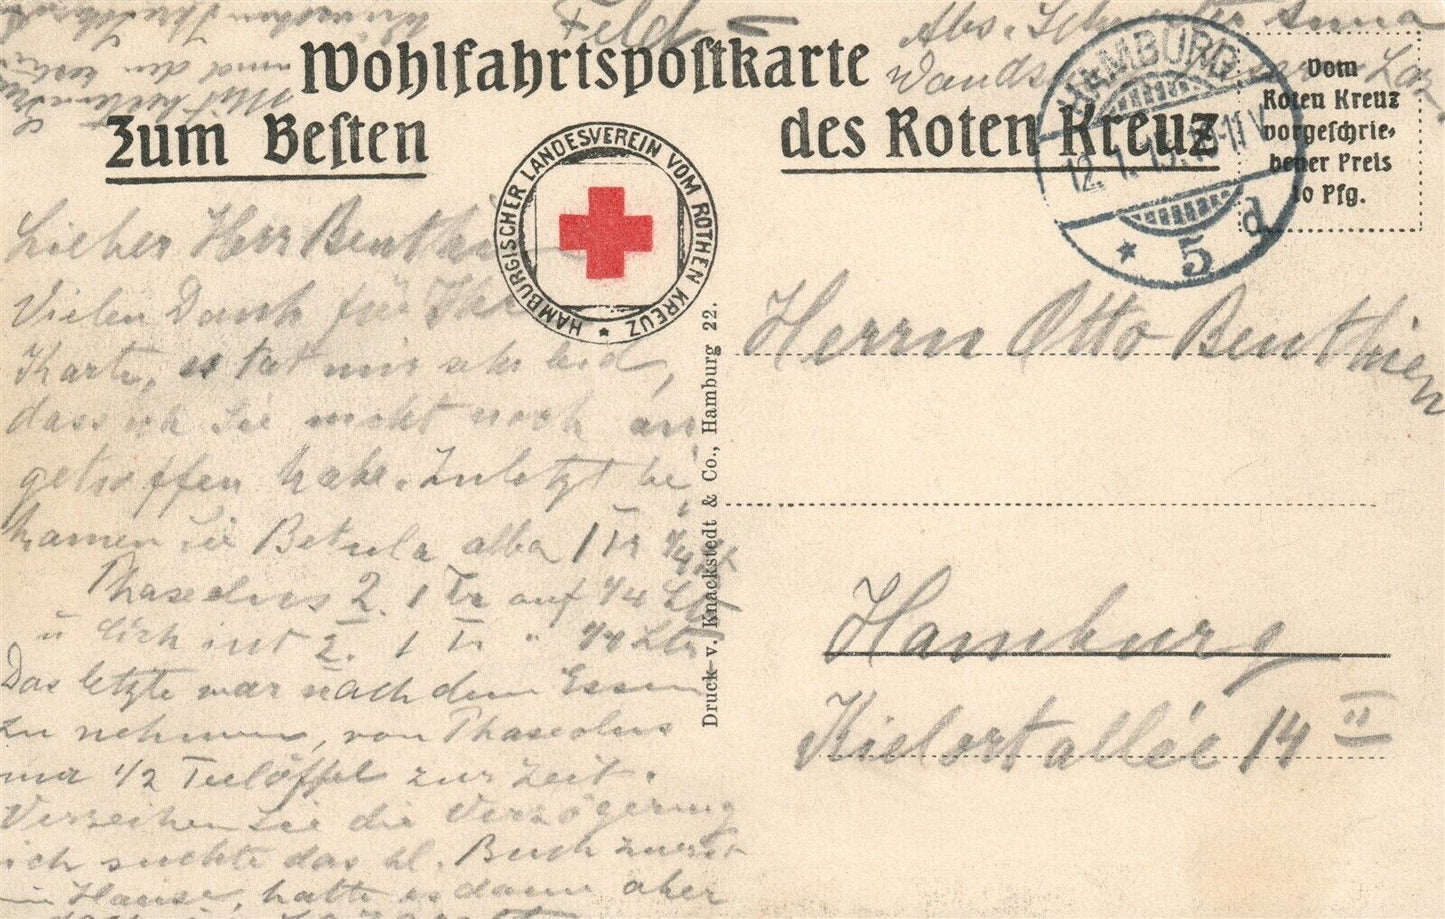 Wohlfahrtspostkarte
Zum Besten des Roten Kreuz
HAMBURGISCHER LANDESVEREIN VOM ROTHEN KREUZ *
Feld
Abs. Schwester Anna
Wands
Laz.
HAMBURG
12.7.15. 10-11 V.
* 5 d
Vom
Roten Kreuz
vorgeschrie-
bener Preis
10 Pfg.
Herrn Otto Benthien
Hamburg
Kielortallée 14 II
Druck v. Knackstedt & Co., Hamburg 22.
Lieber Herr Benthien
Vielen Dank für Ihre
Karte, es tat mir sehr leid,
dass ich Sie nicht noch an
getroffen habe. Zuletzt be
kamen Sie Betula alba 1 Tr 1/4 Ltr
Phaseolus 2. 1 Tr auf 1/4 Ltr
u 2. 1 Tr " 1/4 Ltr
Das letzte war nach dem Essen
zu nehmen, von Phaseolus
nur 1/2 Teelöffel zur Zeit.
Verzeihen Sie die Verzögerung
ich suchte das kl. Buch zuerst
im Hause, hatte es dann aber
doch im Lazarett
Mit
und den
wünschen Ihr